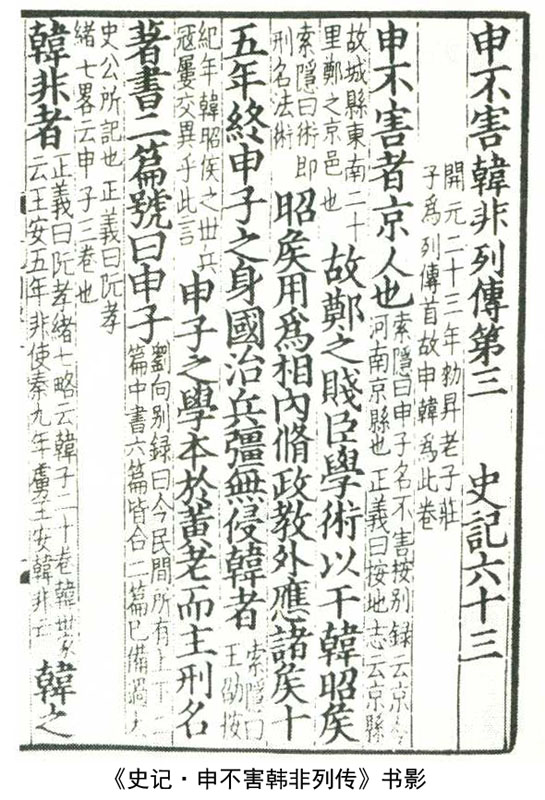 申不害韓非列傳第三　史記六十三
開元二十三年勑昇老子莊
子爲列傳首故申韓爲此卷
申不害者京人也
索隱曰申子名不害按别録云京今
河南京縣也 正義曰按地志云京縣
故城縣東南二十
里鄭之京邑也
故鄭之賤臣學術以干韓昭矦
索隱曰術即
刑名法術
昭矦用爲相内脩政教外應諸矦十
五年終申子之身國治兵彊無侵韓者
索隱曰
王劭按
紀年韓昭侯之世兵
寇屢交異乎此言
申子之學本於黄老而主刑名
著書二篇號曰申子
劉向别録曰今民間所有上下二
篇中書六篇皆合二篇已備過太
史公所記也 正義曰阮孝
緒七畧云申子三卷也
韓非者
正義曰阮孝緒七略云韓子二十卷韓世家
云王安五年非使秦九年虜王安韓非亡
韓之
《史记·申不害韩非列传》书影